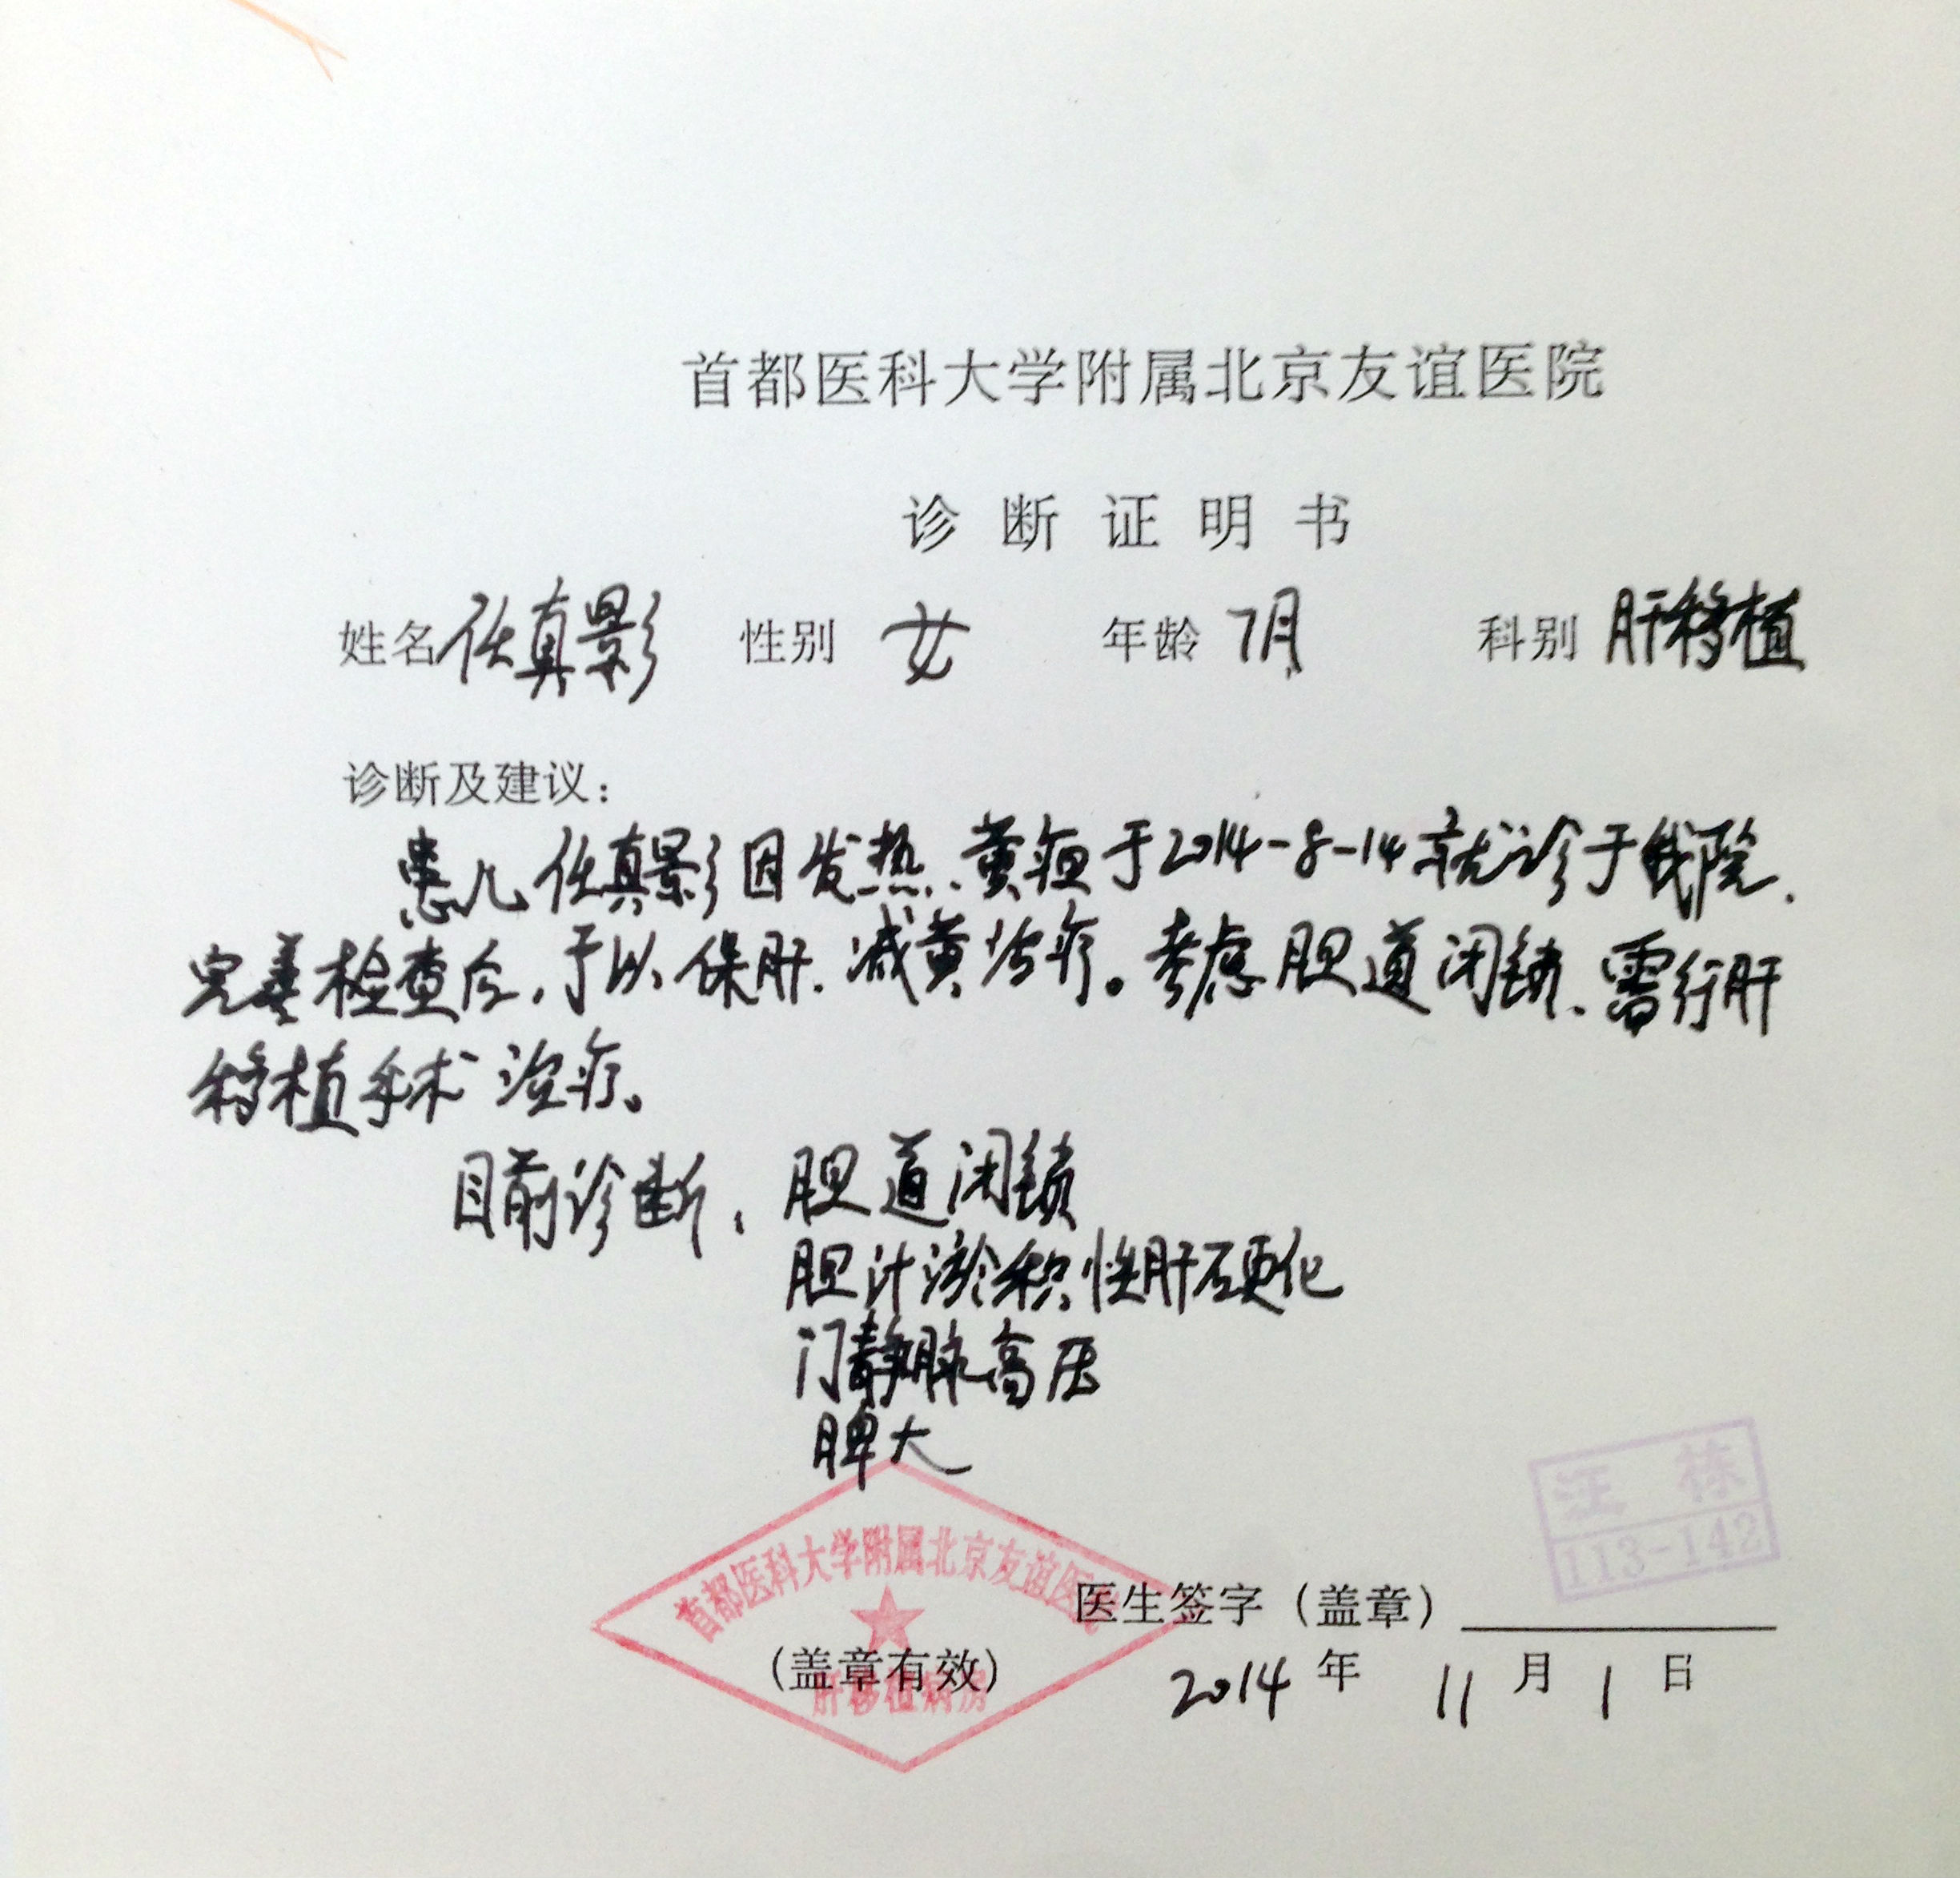 首都医科大学附属北京友谊医院
诊断证明书
姓名 任真影 性别 女 年龄 7月 科别 肝移植
诊断及建议：
患儿任真影因发热、黄疸于2014-8-14就诊于我院.
完善检查后,予以保肝.减黄治疗。考虑胆道闭锁、需行肝
移植手术治疗。
目前诊断、胆道闭锁
胆汁淤积性肝硬化
门静脉高压
脾大
汪栋
113-142
首都医科大学附属北京友谊医院
医生签字（盖章）
（盖章有效）
肝移植病房
2014年11月1日